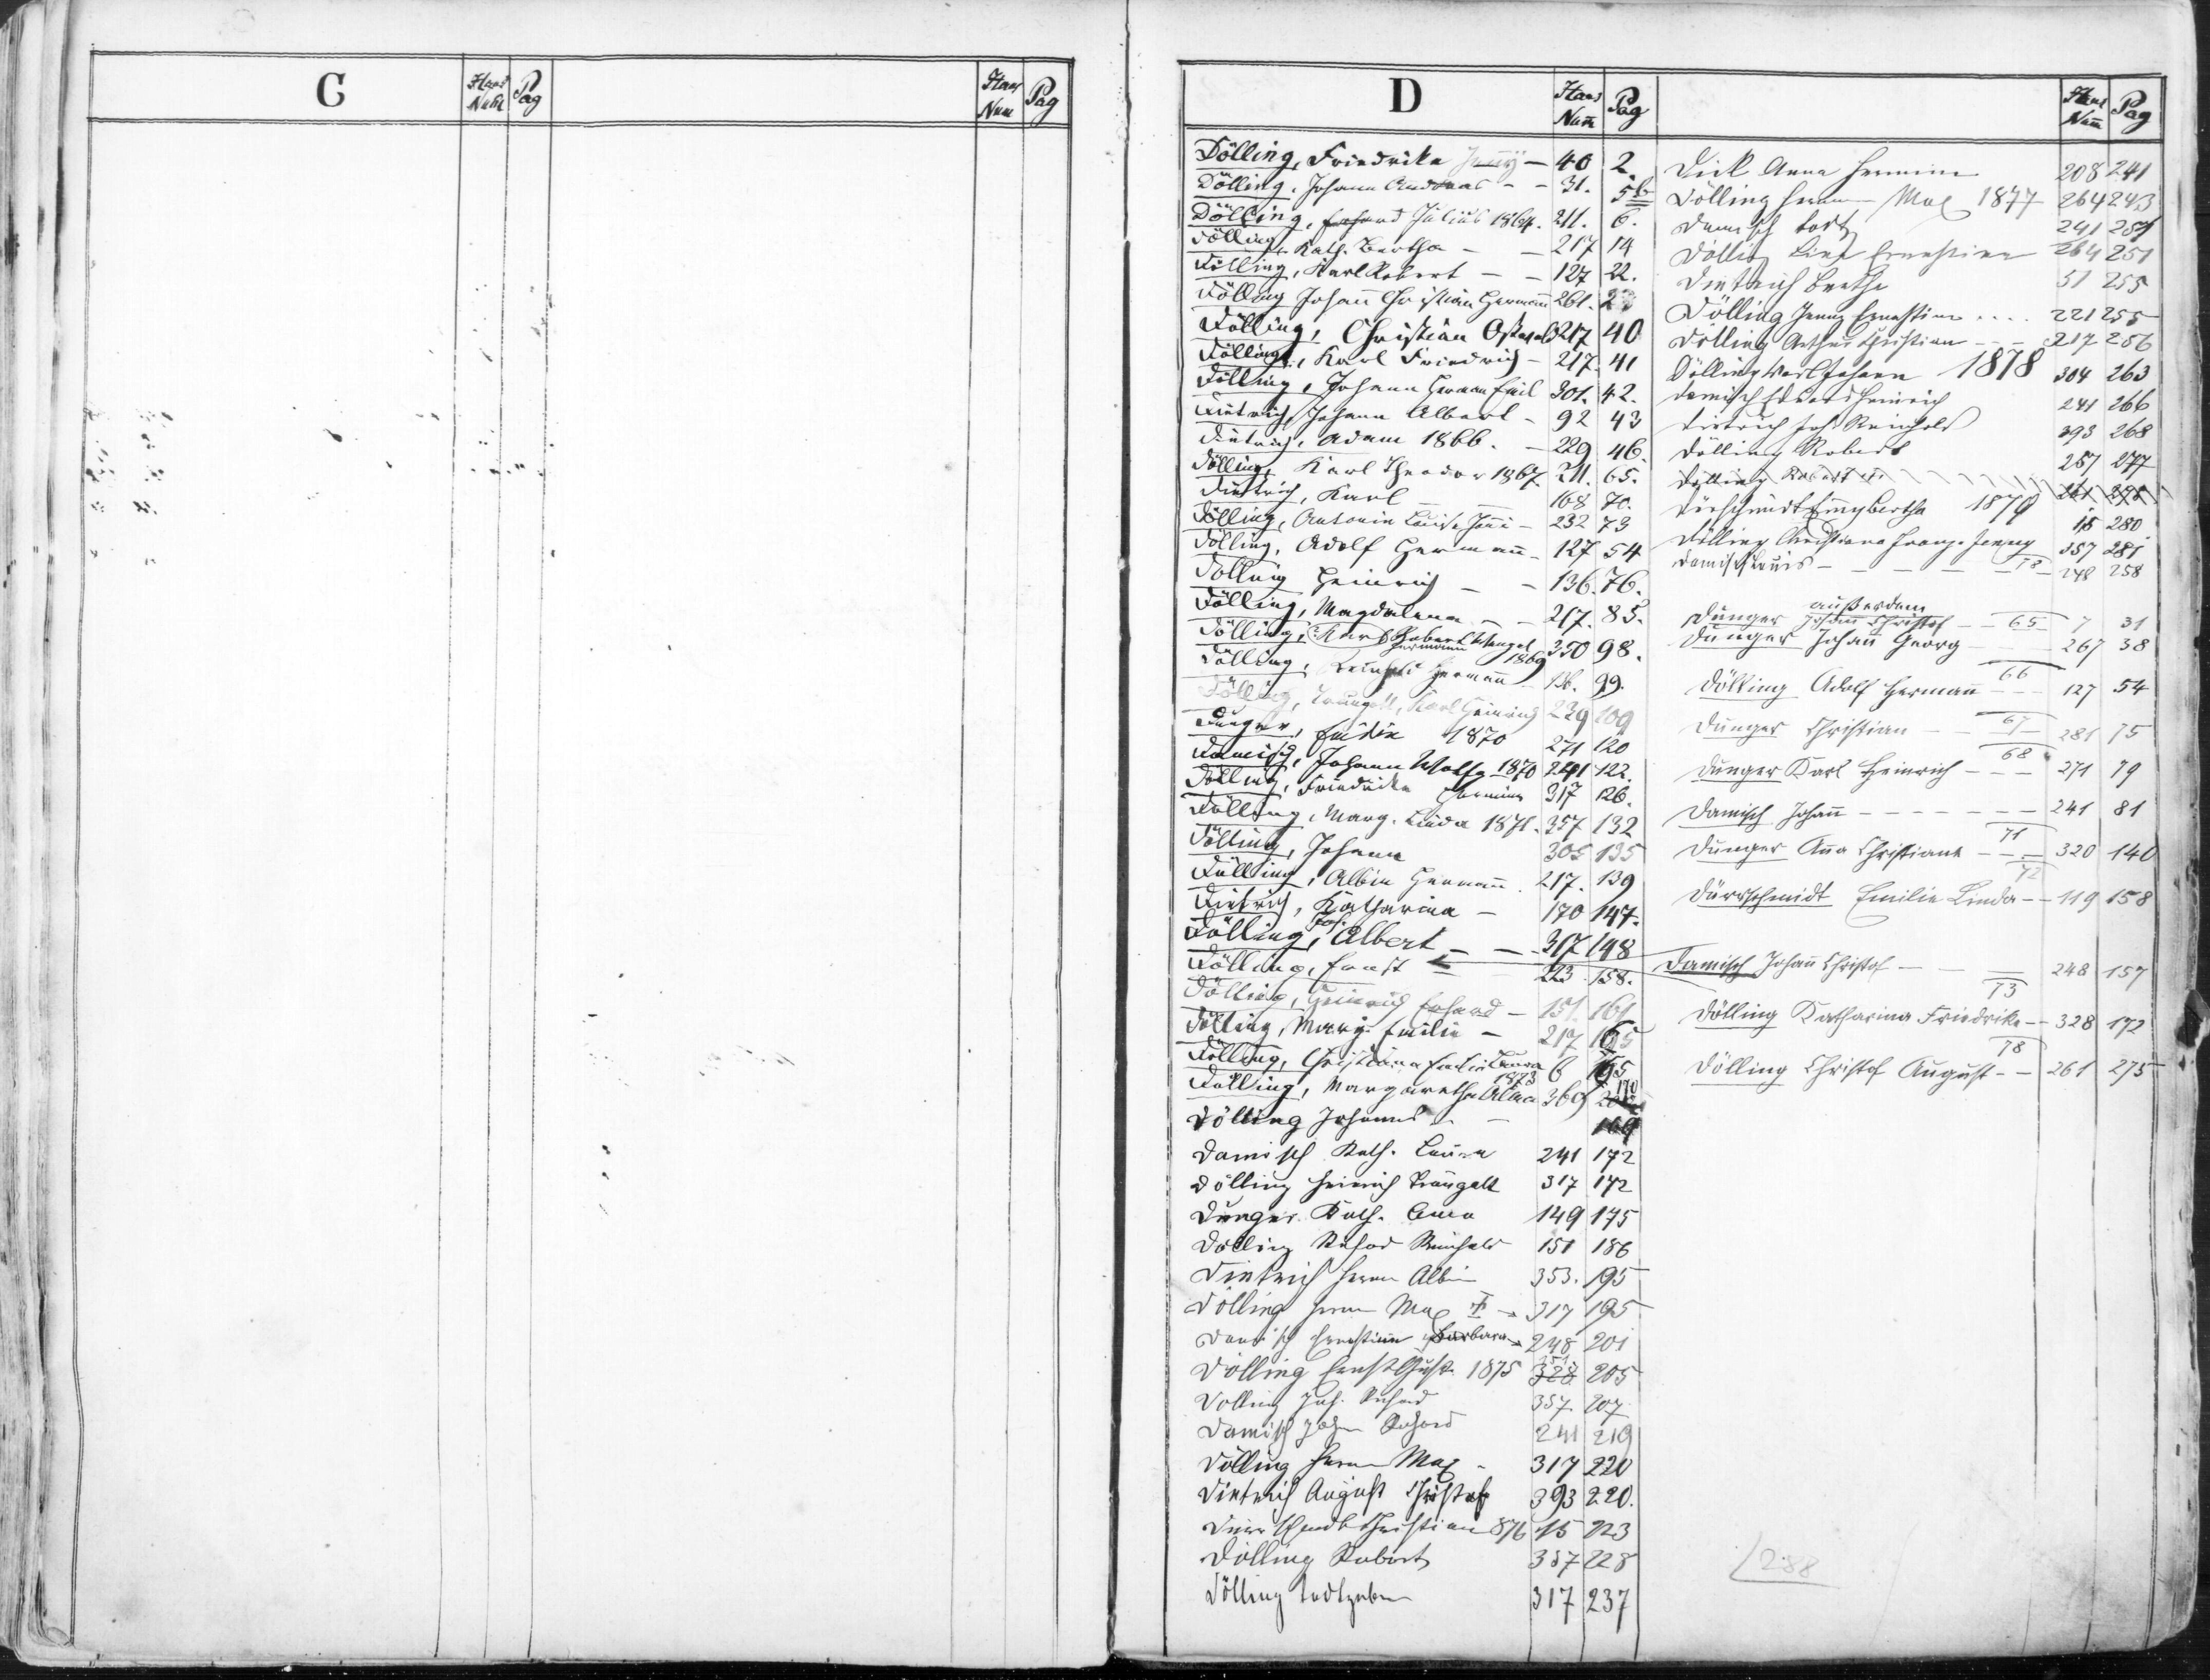 C Haus Num Pag Haus Num Pag
D Haus Num Pag Haus Num Pag
Dölling, Friedrika Jenny - 40 2.
Dölling, Johann Andreas - - 31. 5b
Dölling, Erhard Julius 1864. 211. 6.
Dölling, Kath. Bertha - - 217 14
Dölling, Karl Robert - - 127 22.
Dölling Johann Christian Hermann 261.
Dölling, Christian 217 40
Dölling, Karl Friedrich - 217. 41
Dölling, Johann Herman Emil 301. 42.
Dietrich, Johann Albert - 92 43
Dietrich, Adam 1866. - 229 46.
Dölling, Karl Theodor 1867. 211. 65.
Dietrich, Karl - - 168 70.
Dölling, Antonie Luise - 232 73
Dölling, Adolf Hermann - 127 54
Dölling Heinrich - - 136. 76.
Dölling, Magdalena - - 217. 85.
Dölling, Karl Robert Hermann 1869 350 98.
Dölling, Hermann - 136. 99.
Dölling, Traugott, Karl Heinrich 229 109
Dunger, Emilie 1870 271 120
Damisch, Johann Wolfg 1870 241 122.
Dölling, Friedrika Hermine 317 126.
Dölling, Marg. Linda 1871. 357 132
Dölling, Johann 305 135
Dölling, Albin Hermann. 217. 139
Dietrich, Katharina - 170 147.
Dölling, Joh. Albert - - 317 148
Dölling, Ernst - 223. 158.
Dölling, Heinrich Erhard - 151. 161
Dölling, Marg. Emilie - 217 165
Dölling, Christiana Emilie Laura 6 165
Dölling, Margaretha Alma 1873 369 170
Dölling Johannes - - 169
Damisch Kath. Laura 241 172
Dölling Heinrich Traugott 317 172
Dunger Kath. Anna 149 175
Dölling Richard Reinhold 151 186
Dietrich Herm Albin 353. 195
Dölling Herm Max 317 195
Damisch Ernestine Barbara 248 201
Dölling Ernst Gust. 1875 151 328 205
Dölling Joh. Richard 357 207
Damisch Johann Richard 241 219
Dölling Herm Max - 317 220
Dietrich August Christof 393 220.
Dürrschmidt Christian 876 15 223
Dölling Robert 357 228
Dölling todtgeboren 317 237
Dick Anna Hermine 208 241
Dölling Herm Max 1877 264 243
Damisch todtg 241 251
Dölling Lina Ernestine 264 251
Dietrich Bertha 51 255
Dölling Jenny Ernestine . . . . 221 255
Dölling Arthur Christian - - - 217 256
Dölling Karl Johann 1878 304 263
Damisch Eduard Heinrich 241 266
Dietrich Joh Reinhold 393 268
Dölling Robert 257 277
Dölling Robert 261 275
Dürschmidt Emmy Bertha 1879 15 280
Dölling Christiana Franz. Jenny 357 281
Damisch Louis - - - - - 78 - 248 258
außerdem
Dunger Johann Christof - - 65 - 7 31
Dunger Johann Georg - - 267 38
66
Dölling Adolf Hermann - - 127 54
67
Dunger Christian - - - 281 75
68
Dunger Karl Heinrich - - - 271 79
Damisch Johann - - - - - 241 81
71
Dunger Anna Christiane - - - 320 140
72
Dürrschmidt Emilie Linda - - 119 158
Damisch Johann Christof - - - 248 157
73
Dölling Katharina Friedrike - - 328 172
78
Dölling Christof August - - 261 275
288